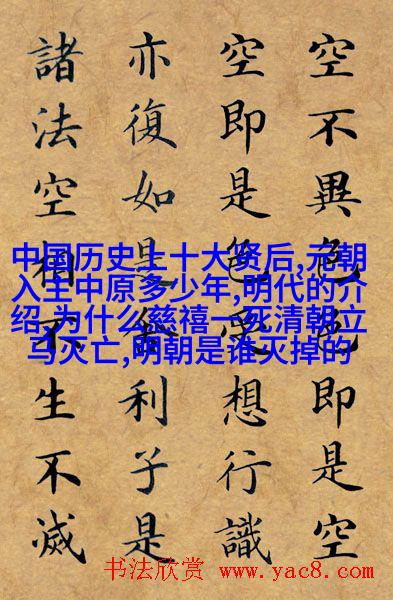 空不異色色即是空
空即是色受想行識
亦復如是舍利子是
諸法空相不生不滅
中国历史上十大贤后,元朝
入主中原多少年,明代的介
绍,为什么慈禧一死清朝立
马灭亡,明朝是谁灭掉的
书法欣赏 www.yac8.com